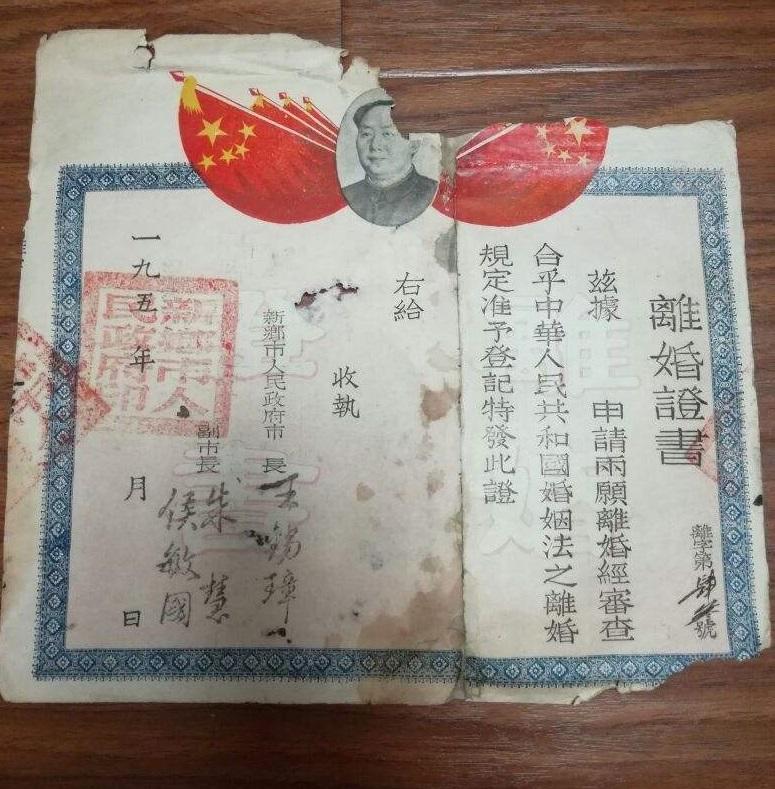 離婚證書
離字第 號
茲據 申請兩願離婚經審查
合乎中華人民共和國婚姻法之離婚
規定准予登記特發此證
右給
收執
新鄉市人民政府市 長 王錫璋
副市長 朱 慧
侯敏國
一九五 年 月 日
新鄉市人民政府印